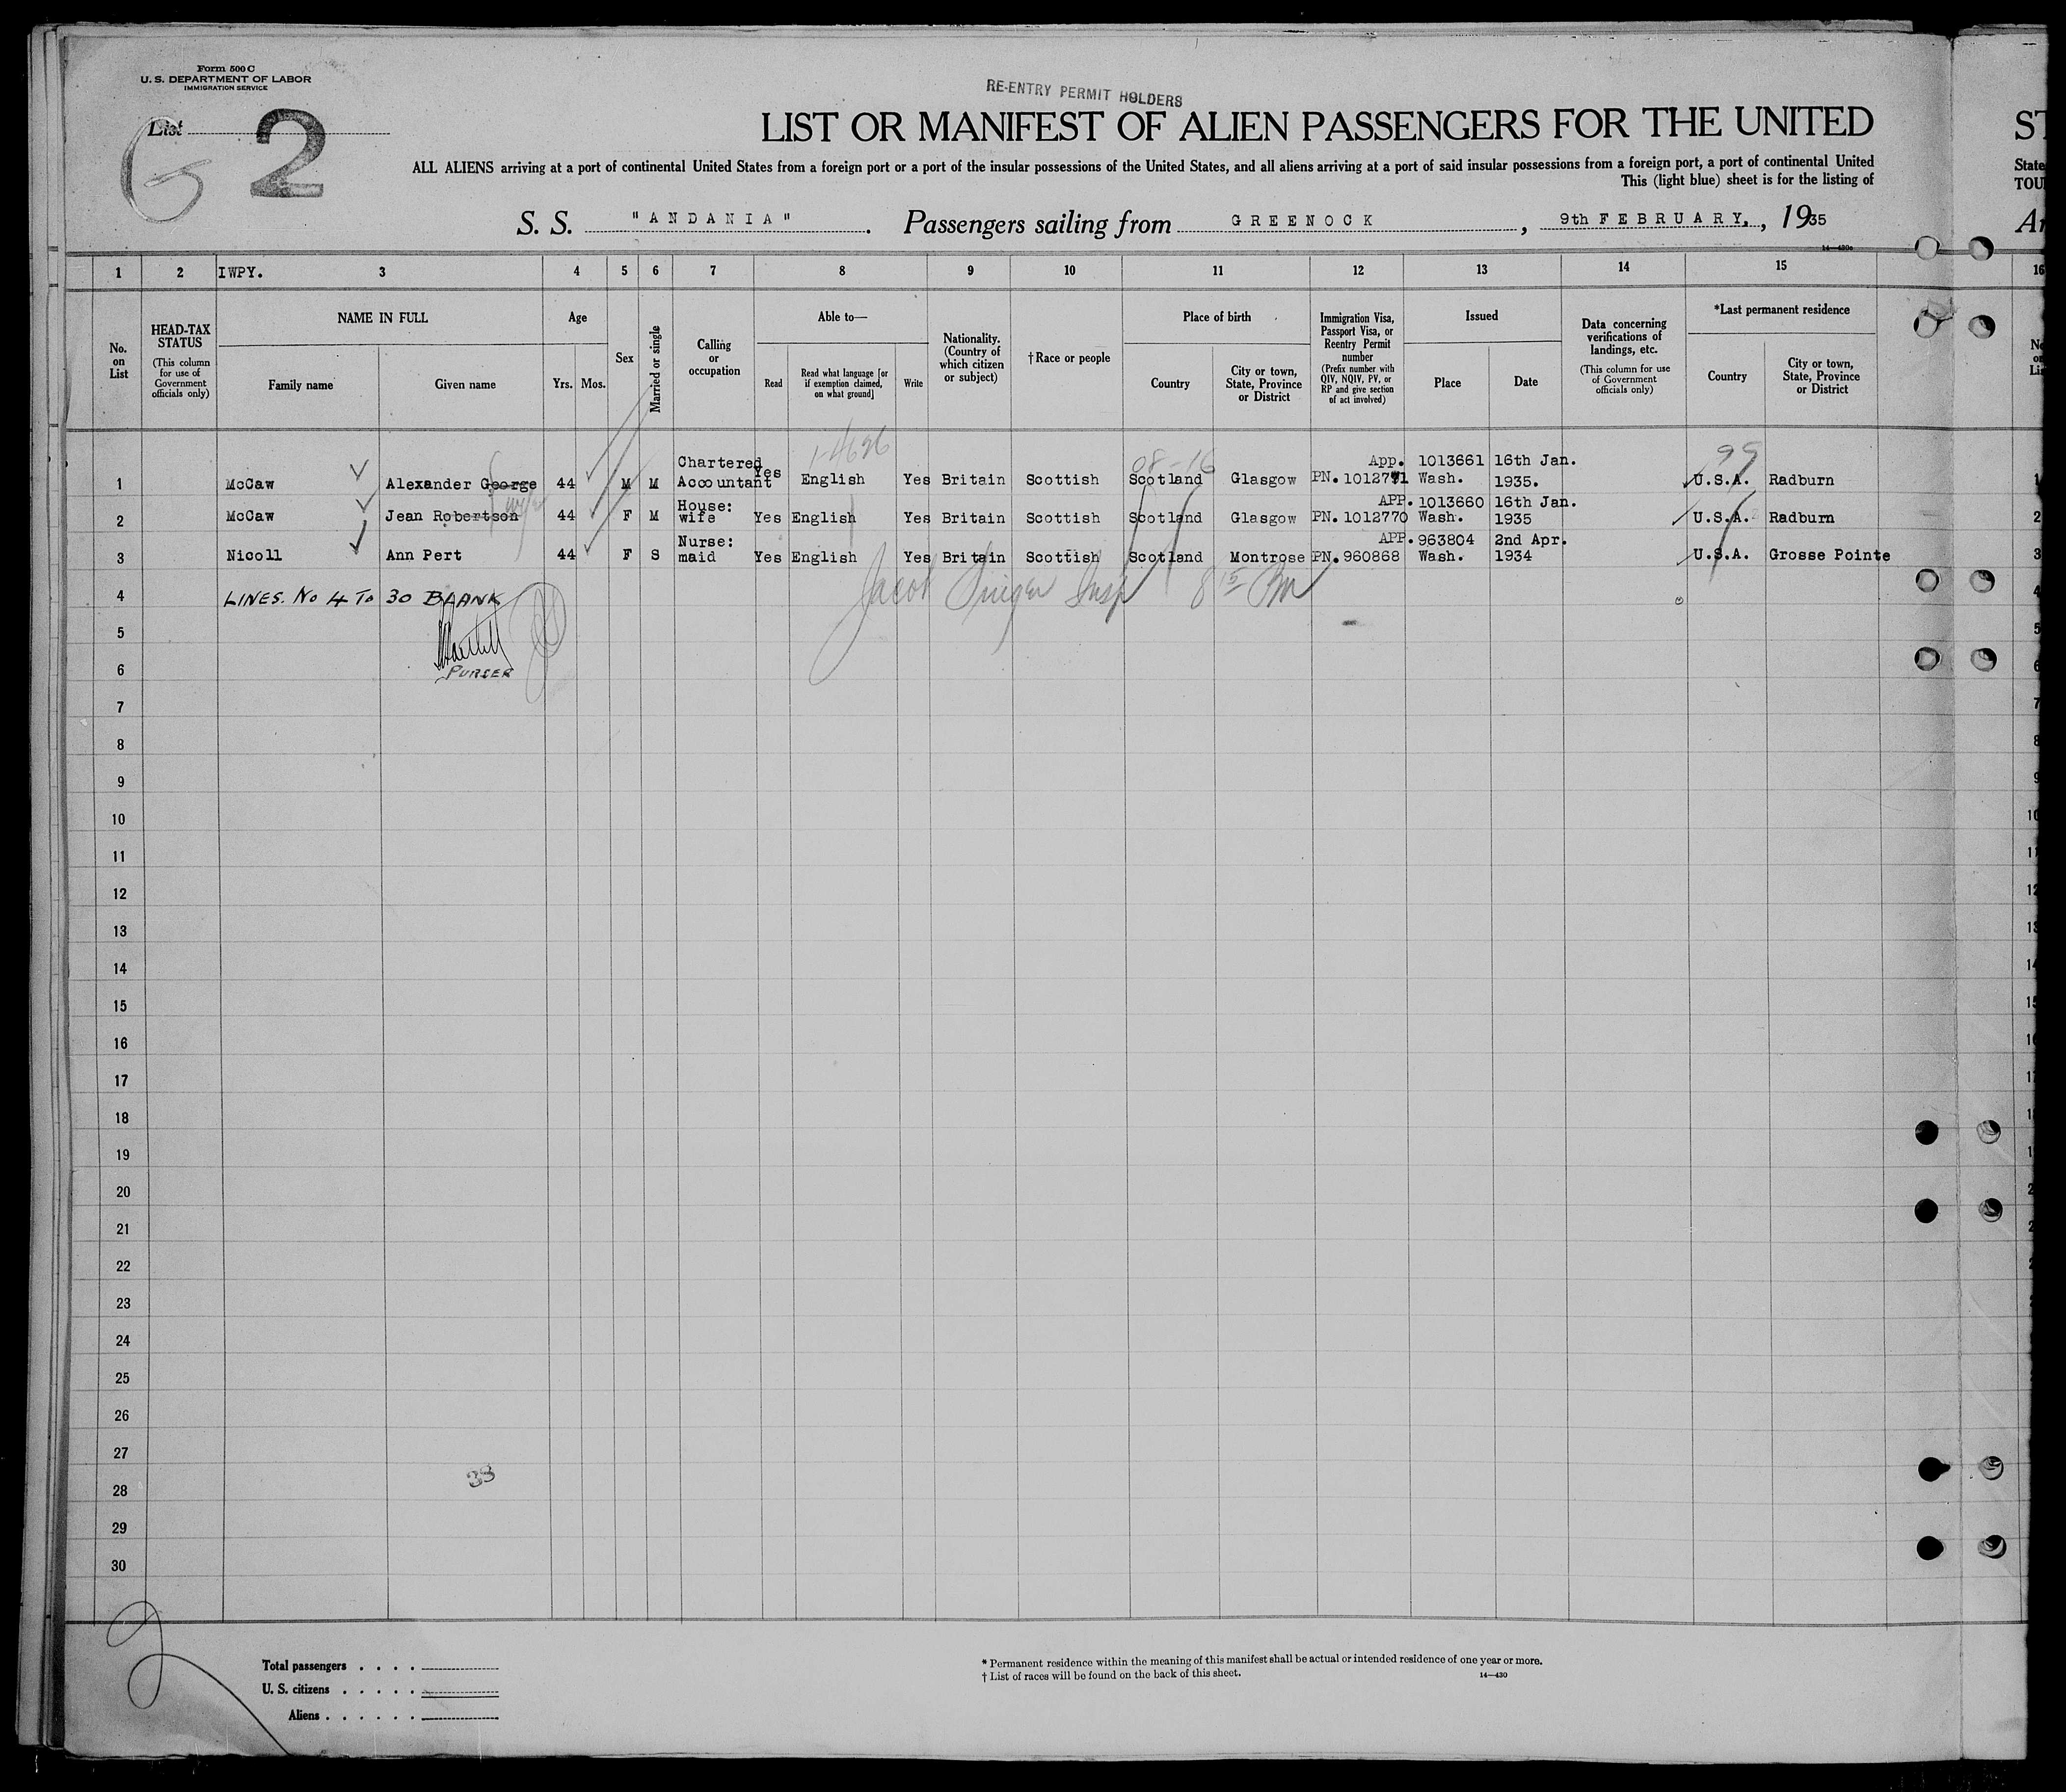 Form 500 C
U. S. DEPARTMENT OF LABOR
IMMIGRATION SERVICE
List
2
RE-ENTRY PERMIT HOLDERS
LIST OR MANIFEST OF ALIEN PASSENGERS FOR THE UNITED
ALL ALIENS arriving at a port of continental United States from a foreign port or a port of the insular possessions of the United States, and all aliens arriving at a port of said insular possessions from a foreign port, a port of continental United
This (light blue) sheet is for the listing of
S. S. "ANDANIA". Passengers sailing from GREENOCK, 9th FEBRUARY, , 1935
14—430c
ST
State
TOU
Ar
1 2 IWPY. 3 4 5 6 7 8 9 10 11 12 13 14 15 16
No. on List
HEAD-TAX STATUS
(This column for use of Government officials only)
NAME IN FULL
Family name
Given name
Age
Yrs.
Mos.
Sex
Married or single
Calling or occupation
Able to—
Read
Read what language [or if exemption claimed, on what ground]
Write
Nationality. (Country of which citizen or subject)
†Race or people
Place of birth
Country
City or town, State, Province or District
Immigration Visa, Passport Visa, or Reentry Permit number
(Prefix number with QIV, NQIV, PV, or RP and give section of act involved)
Issued
Place
Date
Data concerning verifications of landings, etc.
(This column for use of Government officials only)
*Last permanent residence
Country
City or town, State, Province or District
1-4696
08-16
99
1 McCaw Alexander George 44 M M Chartered Accountant Yes English Yes Britain Scottish Scotland Glasgow App. 1013661 PN. 1012771 Wash. 16th Jan. 1935. U.S.A. Radburn
2 McCaw Jean Robertson 44 F M House: wife Yes English Yes Britain Scottish Scotland Glasgow APP. 1013660 PN. 1012770 Wash. 16th Jan. 1935 U.S.A. Radburn
3 Nicoll Ann Pert 44 F S Nurse: maid Yes English Yes Britain Scottish Scotland Montrose APP. 963804 PN. 960868 Wash. 2nd Apr. 1934 U.S.A. Grosse Pointe
4 LINES. No 4 To 30 BLANK
Jacob Singer Insp 8 15 PM
5
6 PURSER
7
8
9
10
11
12
13
14
15
16
17
18
19
20
21
22
23
24
25
26
27
38
28
29
30
Total passengers . . . .
U. S. citizens . . . . .
Aliens . . . . . .
* Permanent residence within the meaning of this manifest shall be actual or intended residence of one year or more.
† List of races will be found on the back of this sheet.
14—430